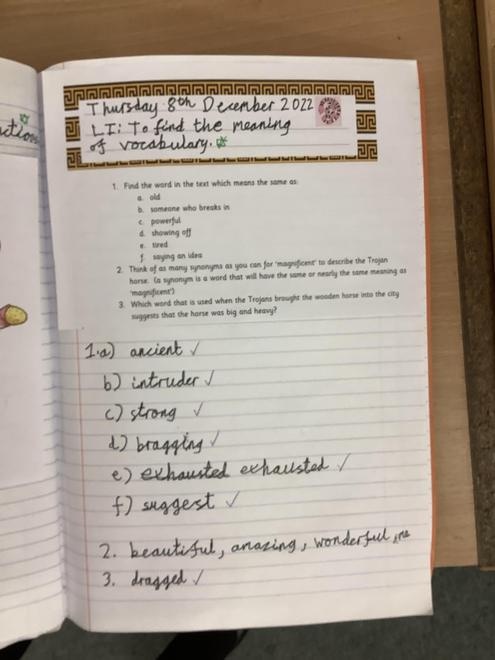 ctions
Thursday 8th December 2022
LI: To find the meaning
of vocabulary.
1. Find the word in the text which means the same as:
a. old
b. someone who breaks in
c. powerful
d. showing off
e. tired
f. saying an idea
2. Think of as many synonyms as you can for 'magnificent' to describe the Trojan
horse. (a synonym is a word that will have the same or nearly the same meaning as
'magnificent')
3. Which word that is used when the Trojans brought the wooden horse into the city
suggests that the horse was big and heavy?
1.a) ancient ✓
b) intruder ✓
c) strong ✓
d) bragging ✓
e) exhausted exhausted ✓
f) suggest ✓
2. beautiful, amazing, wonderful,
3. dragged ✓